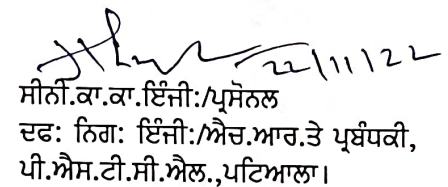 22/11/22
ਸੀਨੀ.ਕਾ.ਕਾ.ਇੰਜੀ:/ਪ੍ਰਸੋਨਲ
ਦਫ: ਨਿਗ: ਇੰਜੀ:/ਐਚ.ਆਰ.ਤੇ ਪ੍ਰਬੰਧਕੀ,
ਪੀ.ਐਸ.ਟੀ.ਸੀ.ਐਲ.,ਪਟਿਆਲਾ।